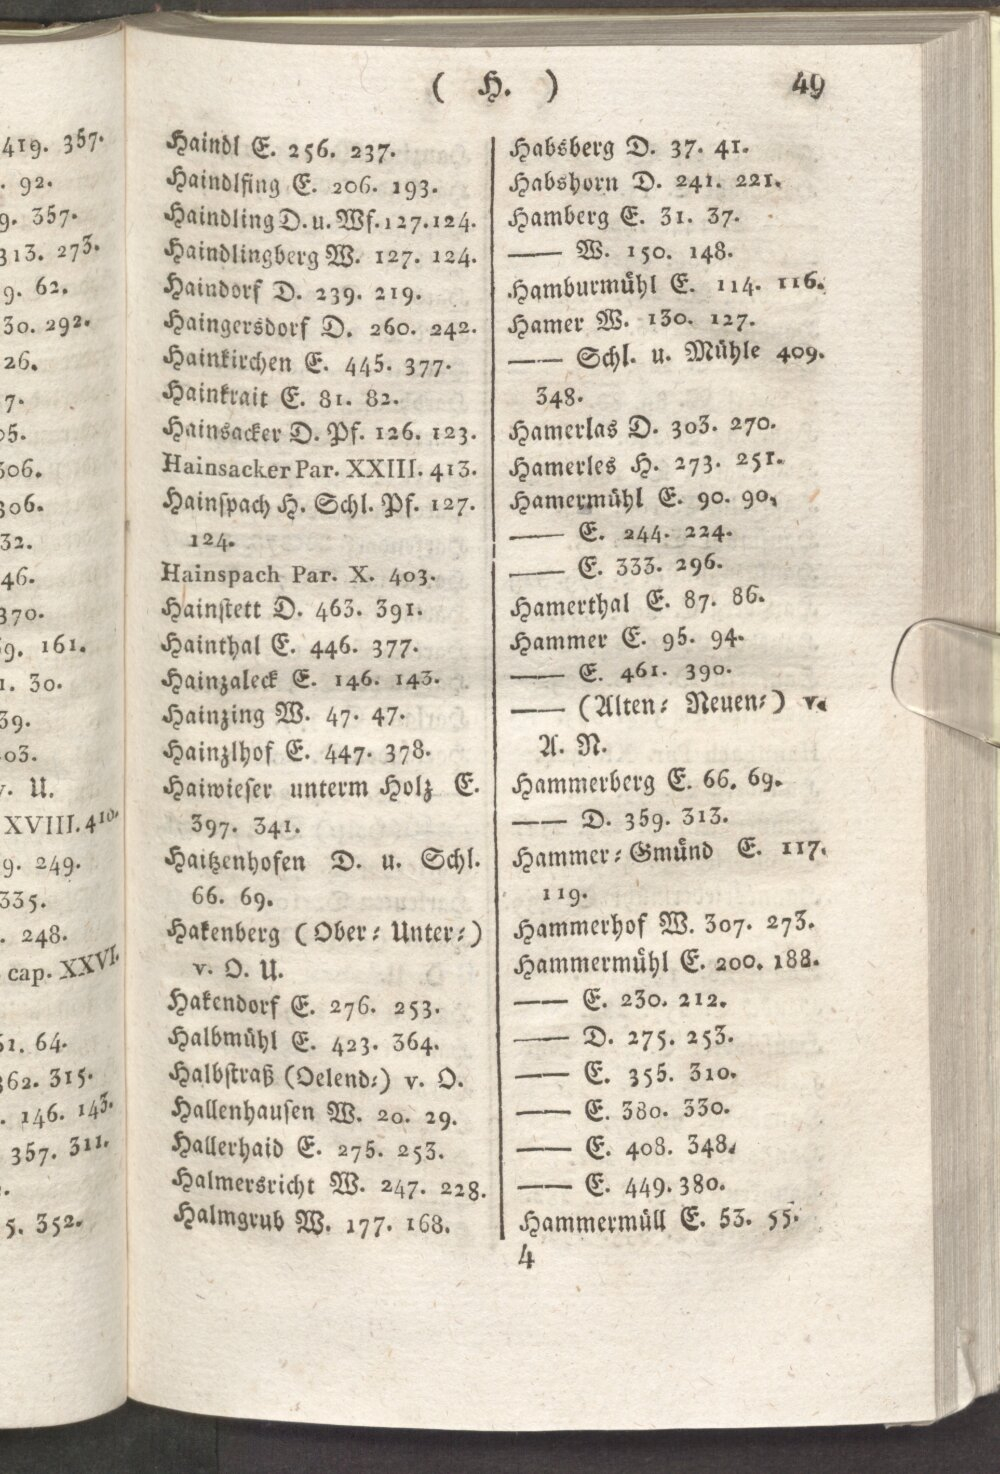 419. 357.
. 92.
9. 357.
313. 273.
9. 62.
30. 292.
26.
7.
05.
306.
306.
32.
46.
370.
9. 161.
1. 30.
39.
403.
v. U.
XVIII. 410.
9. 249.
335.
. 248.
cap. XXVI.
61. 64.
362. 315.
. 146. 143.
357. 311.
5. 352.
( H. ) 49
Haindl E. 256. 237.
Haindlfing E. 206. 193.
Haindling D. u. Wf. 127. 124.
Haindlingberg W. 127. 124.
Haindorf D. 239. 219.
Haingersdorf D. 260. 242.
Hainkirchen E. 445. 377.
Hainkrait E. 81. 82.
Hainsacker D. Pf. 126. 123.
Hainsacker Par. XXIII. 413.
Hainſpach H. Schl. Pf. 127.
124.
Hainspach Par. X. 403.
Hainſtett D. 463. 391.
Hainthal E. 446. 377.
Hainzaleck E. 146. 143.
Hainzing W. 47. 47.
Hainzlhof E. 447. 378.
Haiwieſer unterm Holz E.
397. 341.
Haitzenhofen D. u. Schl.
66. 69.
Hakenberg ( Ober⸗ Unter⸗ )
v. O. U.
Hakendorf E. 276. 253.
Halbmühl E. 423. 364.
Halbſtraß (Oelend⸗) v. O.
Hallenhauſen W. 20. 29.
Hallerhaid E. 275. 253.
Halmersricht W. 247. 228.
Halmgrub W. 177. 168.
Habsberg D. 37. 41.
Habshorn D. 241. 221.
Hamberg E. 31. 37.
—— W. 150. 148.
Hamburmühl E. 114. 116.
Hamer W. 130. 127.
—— Schl. u. Mühle 409.
348.
Hamerlas D. 303. 270.
Hamerles H. 273. 251.
Hamermühl E. 90. 90.
—— E. 244. 224.
—— E. 333. 296.
Hamerthal E. 87. 86.
Hammer E. 95. 94.
—— E. 461. 390.
—— (Alten⸗ Neuen⸗) v.
A. N.
Hammerberg E. 66. 69.
—— D. 359. 313.
Hammer⸗Gmünd E. 117.
119.
Hammerhof W. 307. 273.
Hammermühl E. 200. 188.
—— E. 230. 212.
—— D. 275. 253.
—— E. 355. 310.
—— E. 380. 330.
—— E. 408. 348.
—— E. 449. 380.
Hammermüll E. 53. 55.
4